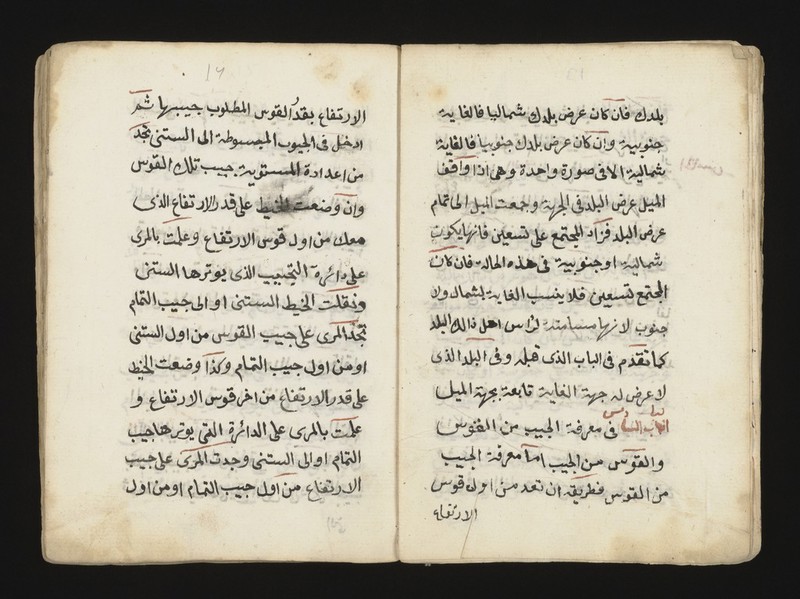 بلدك فان كان عرض بلدك شماليا فالغاية
جنوبية وان كان عرض بلدك جنوبيا فالغاية
شمالية الا فى صورة واحدة وهى اذا وافق
الميل عرض البلد فى الجهة وجمعت الميل الى تمام
عرض البلد فزاد المجتمع على تسعين فانها يكون
شمالية او جنوبية فى هذه الحالة فان كان
المجتمع تسعين فلا ينسب الغاية لشمال ولا
جنوب لانها مسامتة لراس اهل ذالك البلد
كما تقدم فى الباب الذى قبله وفى البلد الذى
لا عرض له جهة الغاية تابعة بجهة الميل
فى معرفة الجيب من القوس
والقوس من الجيب اما معرفة الجيب
من القوس فطريقه ان تعد من اول قوس
الارتفاع
١٦
الارتفاع بقدر القوس المطلوب جيبها ثم
ادخل فى الجيوب المبسوطة الى الستنى تجد
من اعداده المستوية جيب تلك القوس
وان وضعت الخيط على قدر الارتفاع الذى
معك من اول قوس الارتفاع وعلمت بالمرى
على دائرة التجيب الذى يوترها الستنى
ونقلت الخيط الستنى او الى جيب التمام
تجد المرى على جيب القوس من اول الستنى
او من اول جيب التمام وكذا وضعت الخيط
على قدر الارتفاع من اخر قوس الارتفاع و
علمت بالمرى على الدائرة التى يوترها جيب
التمام او الى الستنى وجدت المرى على جيب
الارتفاع من اول جيب التمام او من اول